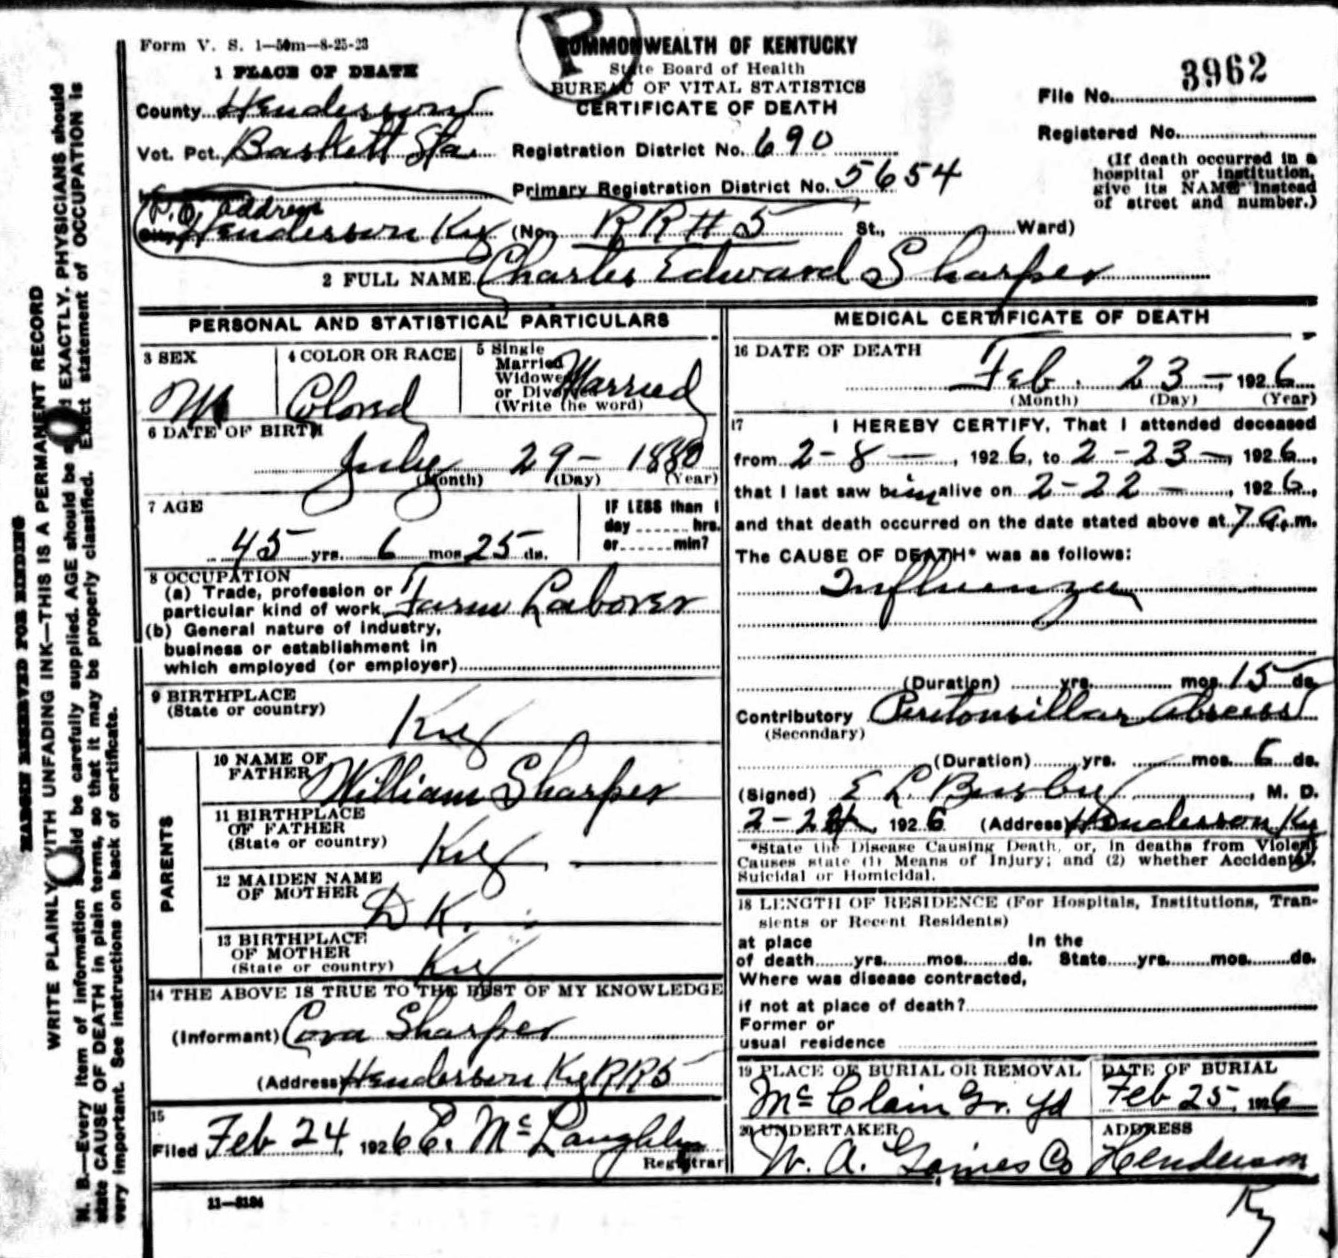 Form V. S. 1—50m—8-25-23
P
COMMONWEALTH OF KENTUCKY
State Board of Health
BUREAU OF VITAL STATISTICS
CERTIFICATE OF DEATH
3962
File No.
Registered No.
(If death occurred in a hospital or institution, give its NAME instead of street and number.)
1 PLACE OF DEATH
County Henderson
Vot. Pct. Baskett Sta.
Registration District No. 690
Primary Registration District No. 5654
P.O. address
Henderson Ky (No. RR # 5 St., Ward)
2 FULL NAME Charles Edward Sharper
PERSONAL AND STATISTICAL PARTICULARS
3 SEX M
4 COLOR OR RACE Colored
5 Single Married Widowed or Divorced (Write the word) Married
6 DATE OF BIRTH
July 29- 1880
(Month) (Day) (Year)
7 AGE
45 yrs. 6 mos 25 ds.
IF LESS than 1 day hrs. or min?
8 OCCUPATION
(a) Trade, profession or
particular kind of work Farm Laborer
(b) General nature of industry,
business or establishment in
which employed (or employer)
9 BIRTHPLACE
(State or country) Ky
PARENTS
10 NAME OF FATHER William Sharper
11 BIRTHPLACE OF FATHER (State or country) Ky
12 MAIDEN NAME OF MOTHER D K.
13 BIRTHPLACE OF MOTHER (State or country) Ky
14 THE ABOVE IS TRUE TO THE BEST OF MY KNOWLEDGE
(Informant) Cora Sharper
(Address) Henderson Ky RR 5
15
Filed Feb 24 1926 E. McLaughlin
Registrar
11—3184
MEDICAL CERTIFICATE OF DEATH
16 DATE OF DEATH
Feb. 23 — 1926
(Month) (Day) (Year)
17 I HEREBY CERTIFY, That I attended deceased
from 2-8 —, 1926, to 2-23—, 1926,
that I last saw him alive on 2-22 —, 1926,
and that death occurred on the date stated above at 7 a. m.
The CAUSE OF DEATH* was as follows:
Influenza
(Duration) yrs. mos 15 ds.
Contributory Peritonsillar abscess
(Secondary)
(Duration) yrs. mos. 6 ds.
(Signed) E L Busby, M. D.
2-24, 1926 (Address) Henderson Ky
*State the Disease Causing Death, or, in deaths from Violent
Causes state (1) Means of Injury; and (2) whether Accidental,
Suicidal or Homicidal.
18 LENGTH OF RESIDENCE (For Hospitals, Institutions, Tran-
sients or Recent Residents)
at place In the
of death yrs. mos. ds. State yrs. mos. ds.
Where was disease contracted,
if not at place of death?
Former or
usual residence
19 PLACE OF BURIAL OR REMOVAL DATE OF BURIAL
McClain Gr. yd Feb 25, 1926
20 UNDERTAKER ADDRESS
W. A. Gaines Co Henderson
Ky
MARGIN RESERVED FOR BINDING
WRITE PLAINLY WITH UNFADING INK—THIS IS A PERMANENT RECORD
N. B.—Every item of information should be carefully supplied. AGE should be EXACTLY. PHYSICIANS should
state CAUSE OF DEATH in plain terms, so that it may be properly classified. Exact statement of OCCUPATION is
very important. See instructions on back of certificate.